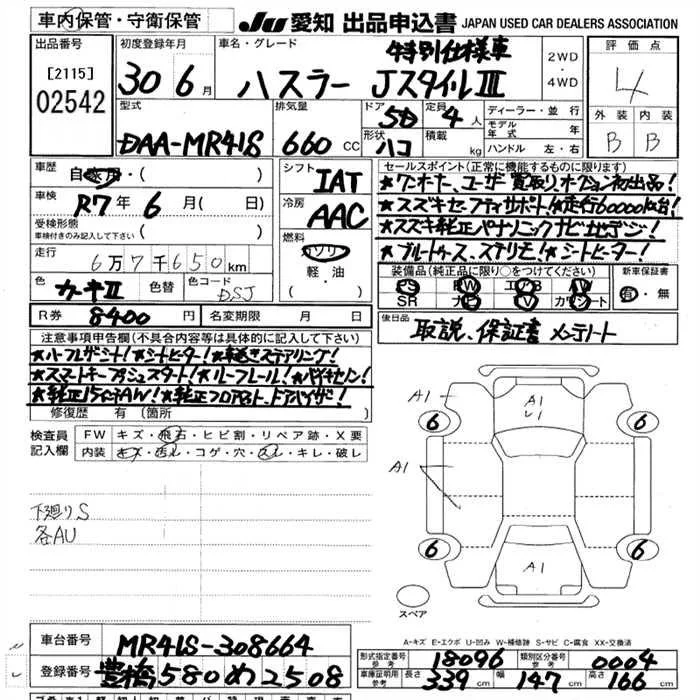 車内保管・守衛保管
JU 愛知 出品申込書 JAPAN USED CAR DEALERS ASSOCIATION
出品番号
[2115]
02542
初度登録年月
30 6月
車名・グレード
特別仕様車
ハスラー JスタイルⅢ
2WD
・
4WD
評価点
4
外装 内装
B B
型式
DAA-MR41S
排気量
660 CC
ドア
5D
形状
ハコ
定員
4人
積載
kg
ディーラー・並行
モデル年式 年
ハンドル 左・右
車歴
自家用・(
車検
R7年 6月( 日)
受検形態
車検付きのみ記入して下さい ( )
走行
6万7千650km
色
ガーキⅡ
色替
色コード
DSJ
R券
8400円
名変期限 月 日
シフト
IAT
冷房
AAC
燃料
ガソリン
軽・油
( )
セールスポイント(正常に機能するものに限ります)
★ワンオーナー、ユーザー買取り、オークション初出品!
★スズキセーフティサポート!★走行60000km台!
★スズキ純正パナソニックナビ地デジ!
★ブルートゥース、ステリモ!★シートヒーター!
装備品(純正品に限り○をつけてください)
PS PW エアB AW
SR ナビ TV カワシート
新車保証書
有・無
後日品
取説、保証書 メンテノート
注意事項申告欄(不具合内容等は具体的に記入して下さい)
★ハーフレザーシート!★シートヒーター!★革巻きステアリング!
★スマートキープッシュスタート!★ルーフレール!★バイキセノン!
★純正15インチAW!★純正フロアマット、ドアバイザー!
修復歴 有 (箇所
検査員記入欄
FW キズ・飛石・ヒビ割・リペア跡・X要
内装 キズ・汚れ・コゲ・穴・スレ・キレ・破レ
下廻りS
各AU
A1
A1
レ1
6
6
A1
6
6
A1
スペア
A-キズ E-エクボ U-凹み W-補修跡 S-サビ C-腐食 XX-交換済
車台番号
MR41S-308664
登録番号
豊橋580め2508
形式指定番号
参考
18096
類別区分番号
参考
0004
車庫証明用
参考
長さ
339cm
幅
147cm
高さ
166cm